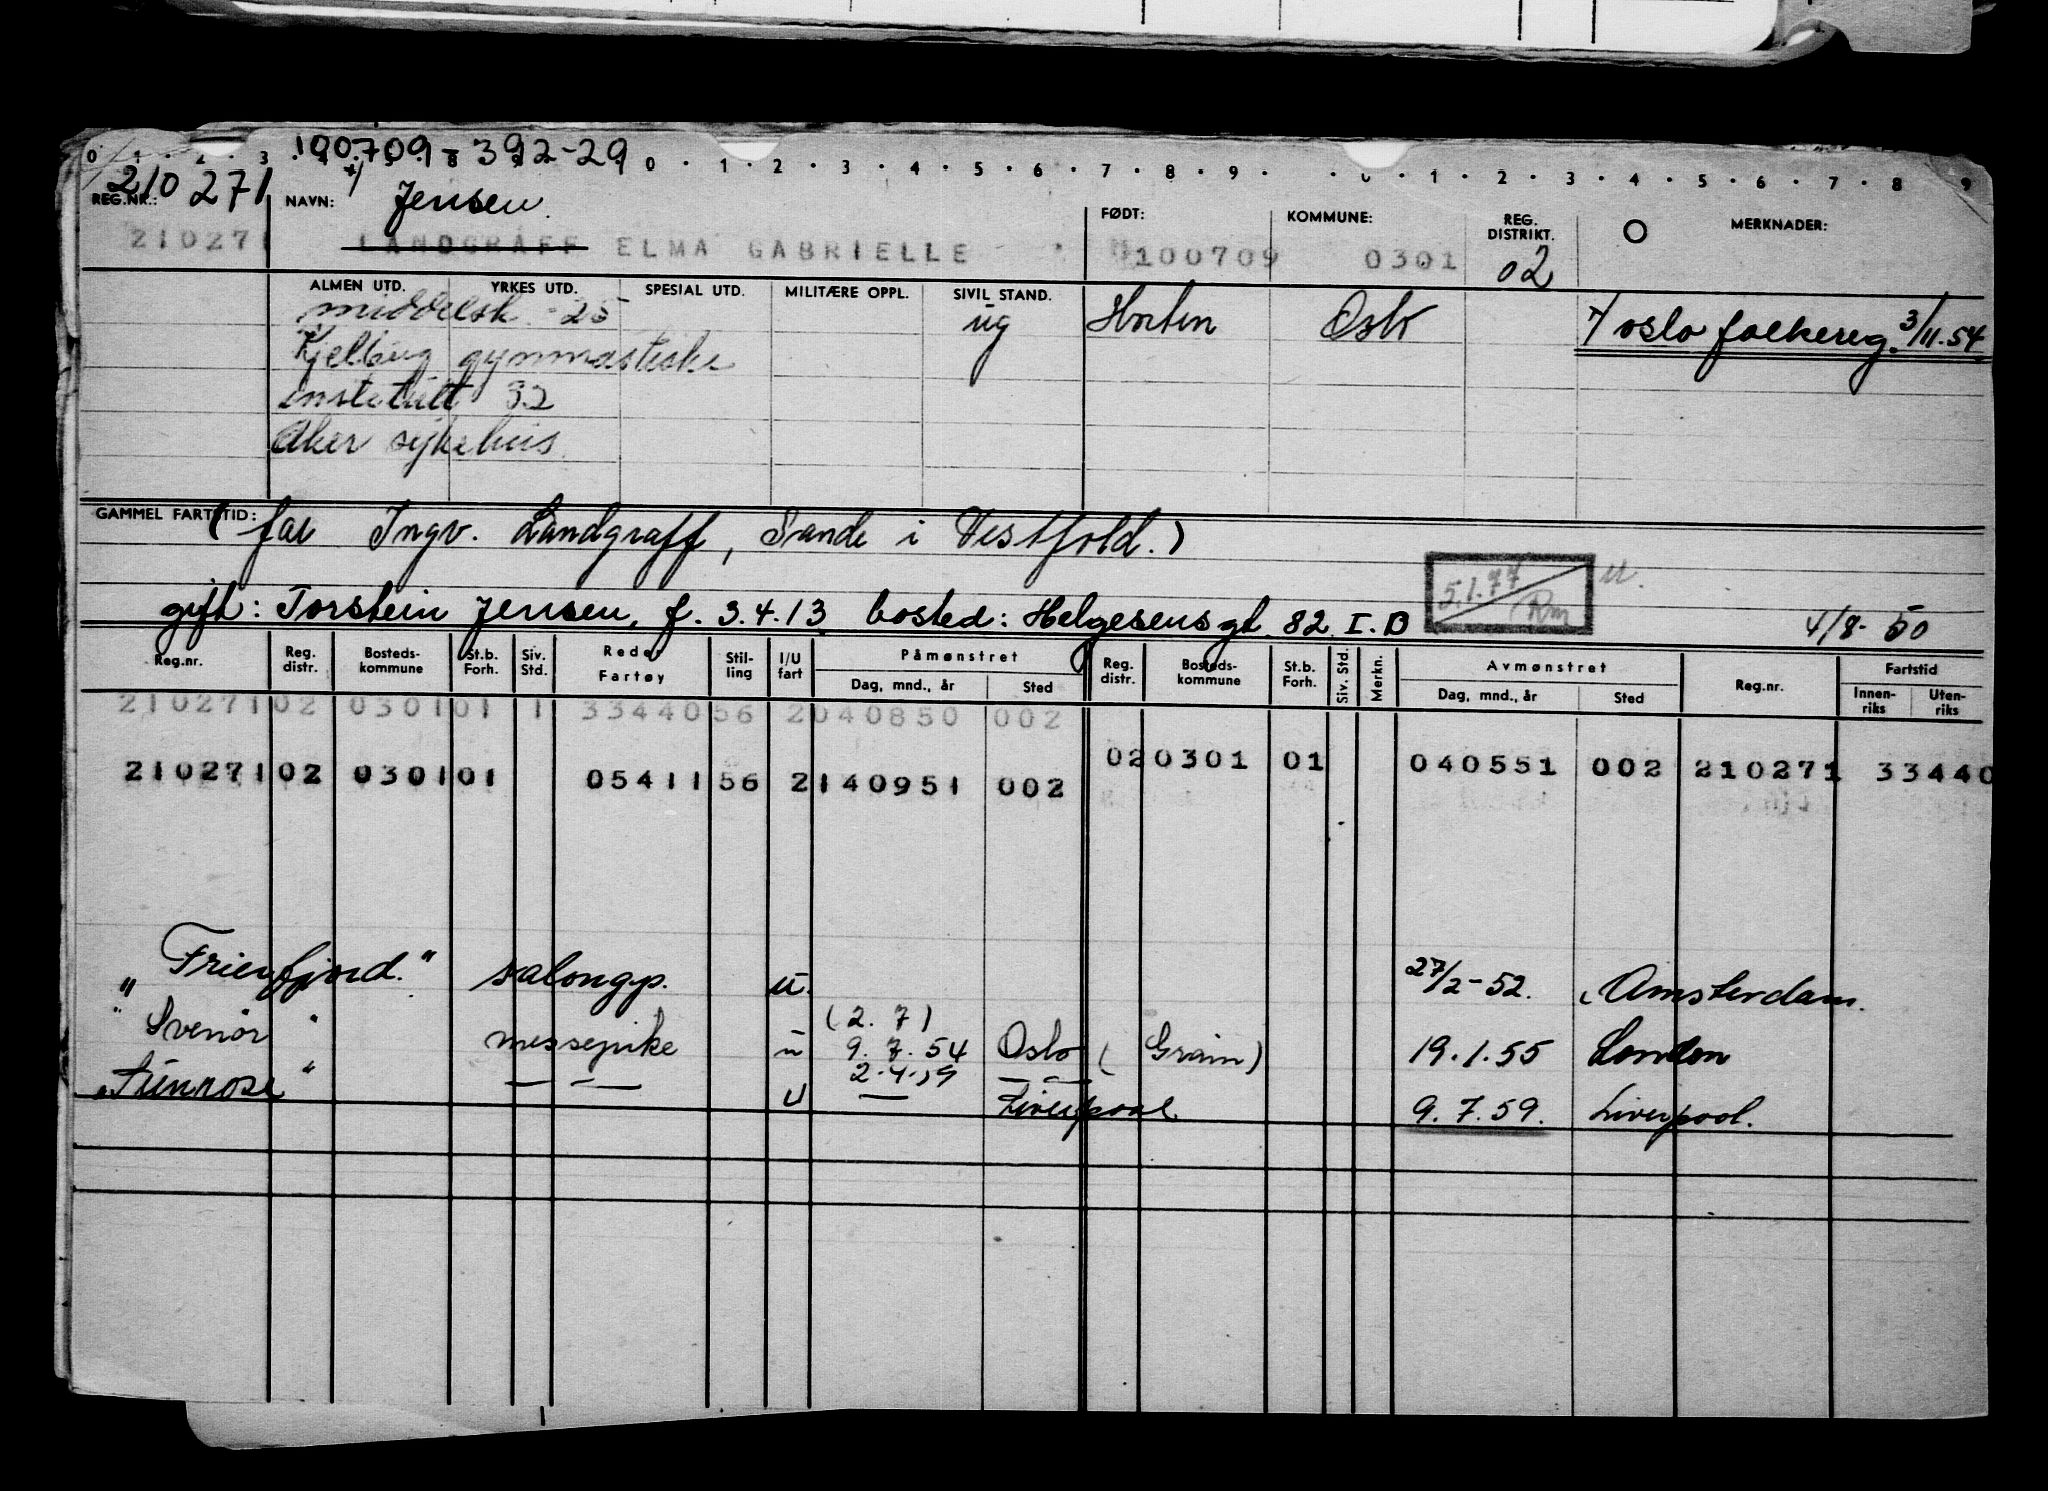 100709-392-29
0 1 2 3 8 0 1 2 3 4 5 6 7 8 9 0 1 2 3 4 5 6 7 8 9
REG.NR.: 210 271 NAVN: x/ Jensen FØDT: KOMMUNE: REG. DISTRIKT. MERKNADER:
210271 LANDGRAFF ELMA GABRIELLE 100709 0301 02
ALMEN UTD. YRKES UTD. SPESIAL UTD. MILITÆRE OPPL. SIVIL STAND.
middelsk 25 ug Horten Oslo x/ oslo folkereg. 3/11.54
gymnastiske
institutt 32
Aker sykehus
GAMMEL FARTSTID: (far Ingv. Landgraff, Sande i Vestfold.)
5.1.77 Rm u.
gift: Torstein Jensen, f. 3.4.13 bosted: Helgesensgt. 82 I. B 4/8-50
Reg.nr. Reg. distr. Bosteds-kommune St.b. Forh. Siv. Std. Rede Fartøy Stil-ling I/U fart Påmønstret Dag, mnd., år Sted Reg. distr. Bosteds-kommune St.b. Forh. Siv. Std. Merkn. Avmønstret Dag, mnd., år Sted Reg.nr. Fartstid Innen-riks Uten-riks
210271 02 0301 01 1 33440 56 2 040850 002
02 0301 01 040551 002 210271 33440
210271 02 0301 01 05411 56 2 140951 002
"Frierfjord." salongp. u. 27/2-52. Amsterdam.
(2.7)
"Svenør" messepike u 9.7.54 Oslo (Grain) 19.1.55 London
2.4.59 — —
— — u — Liverpool 9.7.59. Liverpool.